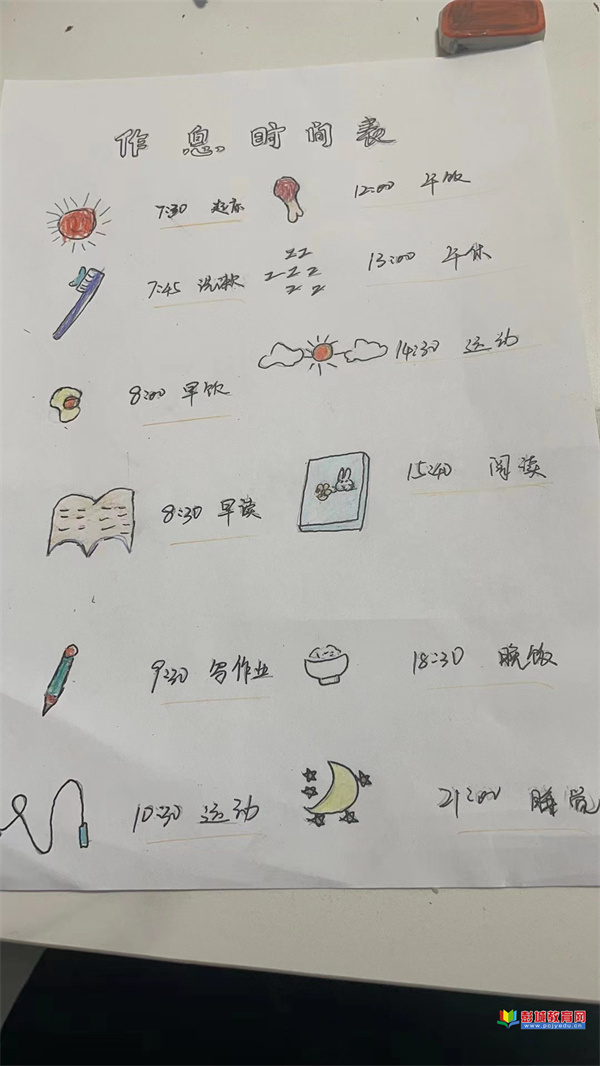 作息时间表
7:30 起床
7:45 洗漱
8:00 早饭
8:30 早读
9:30 写作业
10:30 运动
12:00 午饭
zz
zzz
zz
13:00 午休
14:30 运动
15:40 阅读
18:30 晚饭
21:00 睡觉
彭城教育网
www.pcjyedu.cn